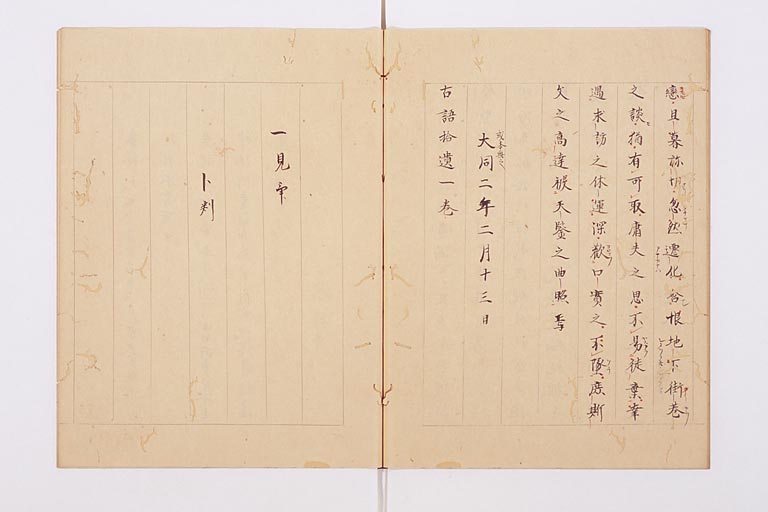 戀且暮弥切忽然遷化含恨地下街巷
之談猶有可取庸夫之思不易徒棄幸
遇求訪之休運深歡口實之不墜庶斯
文之高達被天鑒之曲照焉
大同二年二月十三日
古語拾遺一巻
一見畢
卜判